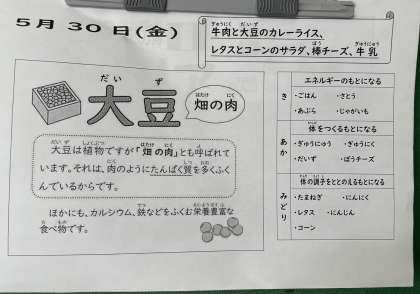 5月30日(金)
牛肉と大豆のカレーライス、
レタスとコーンのサラダ、棒チーズ、牛乳
大豆
畑の肉
大豆は植物ですが「畑の肉」とも呼ばれて
います。それは、肉のようにたんぱく質を多くふく
んでいるからです。
ほかにも、カルシウム、鉄などをふくむ栄養豊富な
食べ物です。
き
エネルギーのもとになる
・ごはん ・さとう
・あぶら ・じゃがいも
あか
体をつくるもとになる
・ぎゅうにゅう ・ぎゅうにく
・だいず ・ぼうチーズ
みどり
体の調子をととのえるもとになる
・たまねぎ ・にんにく
・レタス ・にんじん
・コーン